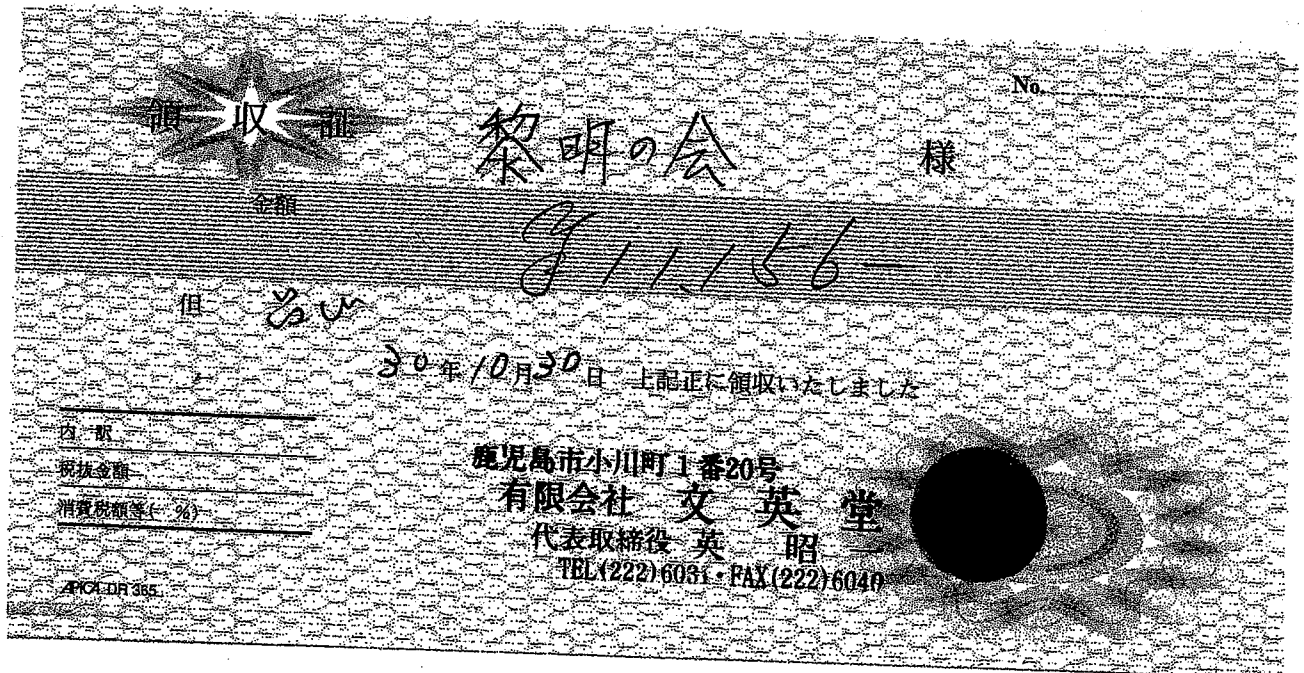 No.
領収証
黎明の会 様
金額
¥11,156-
但
30年10月30日 上記正に領収いたしました
内訳
税抜金額
消費税額等( %)
鹿児島市小川町1番20号
有限会社 文英堂
代表取締役 英 昭一
TEL(222)6031・FAX(222)6040
APICA DR 365